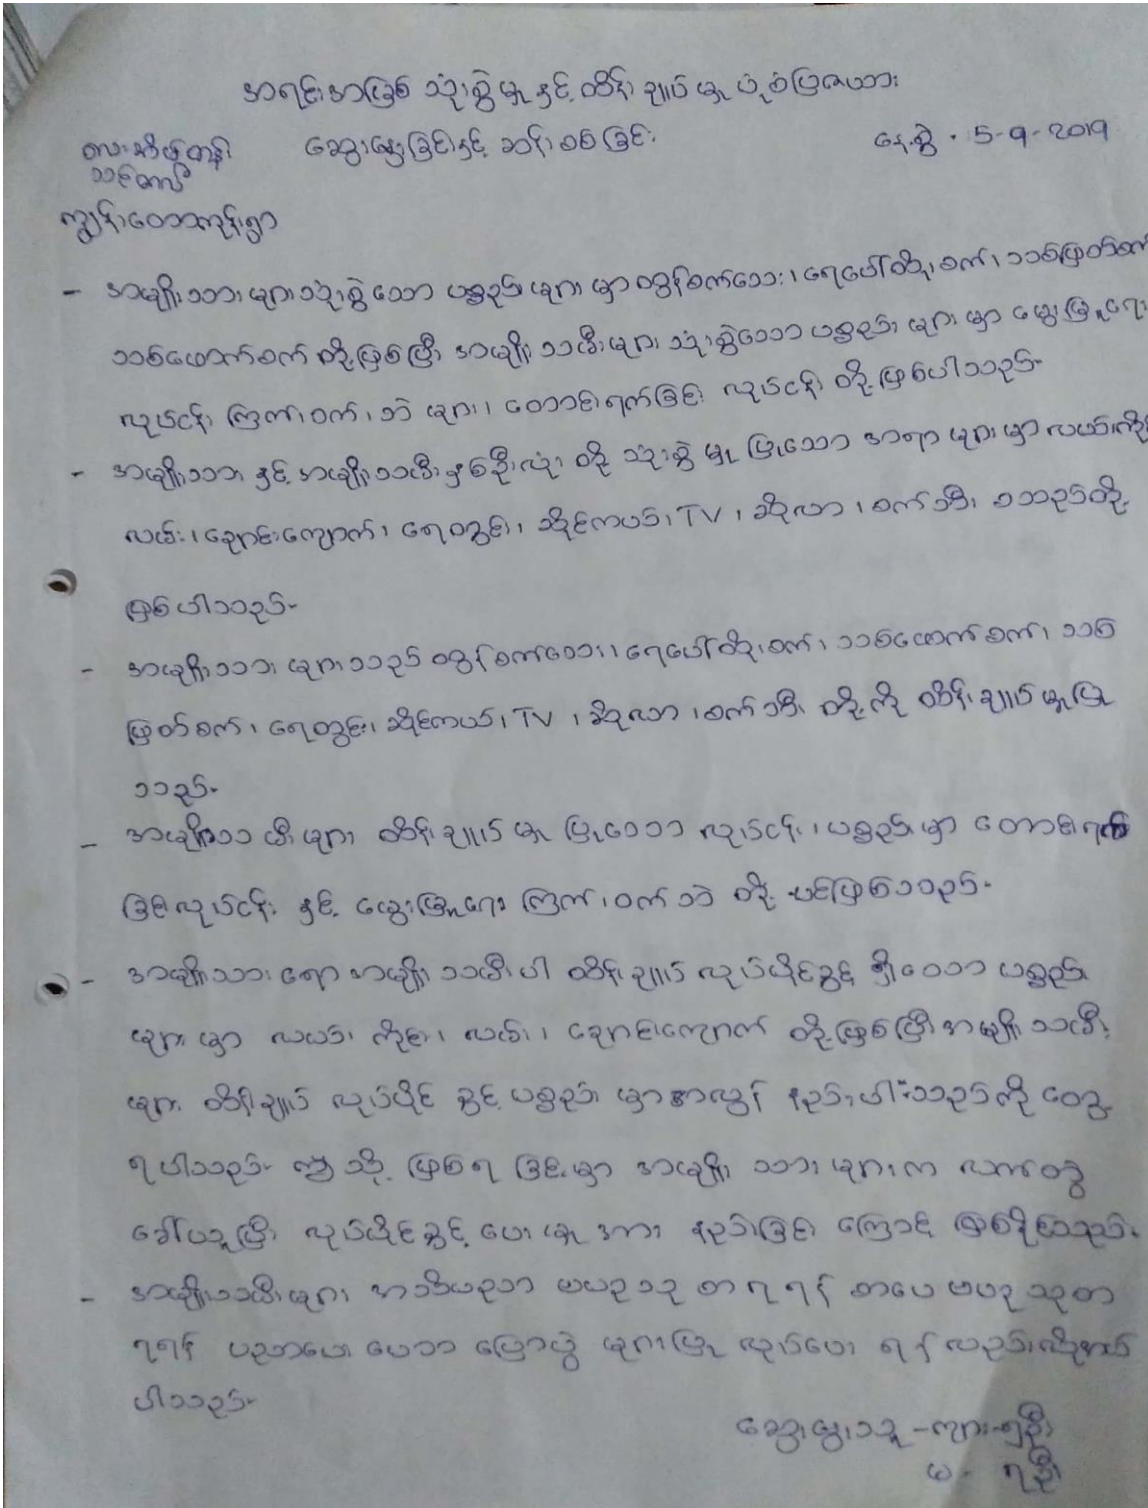 အရင်းအမြစ် သုံးစွဲမှု နှင့် ထိန်းချုပ်မှု ပုံစံပြဇယား
ဆွေးနွေးခြင်းနှင့် ဆန်းစစ်ခြင်း နေ့စွဲ - 5-9-2019
ကျွန်းတောကုန်းရွာ
- အမျိုးသားများသုံးစွဲသော ပစ္စည်းများမှာ ထွန်စက်သေး၊ ရေပေါ်ထိုးစက်၊ သစ်ဖြတ်စက်
သစ်ဖောက်စက် တို့ဖြစ်ပြီး အမျိုးသမီးများ သုံးစွဲသော ပစ္စည်းများမှာ မွေးမြူရေး
လုပ်ငန်း ကြက်၊ ဝက်၊ ဘဲ များ၊ တောင်းရက်ခြင်း လုပ်ငန်း တို့ဖြစ်ပါသည်။
- အမျိုးသား နှင့် အမျိုးသမီး နှစ်ဦးလုံး တို့ သုံးစွဲမှု ပြုသော အရာများမှာ လယ်၊ ကိုင်း
လမ်း၊ ချောင်းကျောက်၊ ရေတွင်း၊ ဆိုင်ကယ်၊ TV ၊ ဆိုလာ ၊ စက်ဘီး စသည်တို့
ဖြစ်ပါသည်။
- အမျိုးသားများသည် ထွန်စက်သေး၊ ရေပေါ်ထိုးစက်၊ သစ်ဖောက်စက်၊ သစ်
ဖြတ်စက်၊ ရေတွင်း၊ ဆိုင်ကယ်၊ TV ၊ ဆိုလာ ၊ စက်ဘီး တို့ကို ထိန်းချုပ်မှုပြု
သည်။
- အမျိုးသမီးများ ထိန်းချုပ်မှု ပြုသော လုပ်ငန်း ၊ ပစ္စည်းမှာ တောင်းရက်
ခြင်းလုပ်ငန်း နှင့် မွေးမြူရေး ကြက်၊ ဝက် ဘဲ တို့ ပင်ဖြစ်သည်။
- အမျိုးသားရော အမျိုးသမီးပါ ထိန်းချုပ် လုပ်ပိုင်ခွင့် ရှိသော ပစ္စည်း
များမှာ လယ်၊ ကိုင်း၊ လမ်း၊ ချောင်းကျောက် တို့ဖြစ်ပြီး အမျိုးသမီး
များ ထိန်းချုပ် လုပ်ပိုင်ခွင့် ပစ္စည်းမှာ အလွန် နည်းပါးသည်ကို တွေ့
ရပါသည်။ ဤသို့ ဖြစ်ရခြင်းမှာ အမျိုးသားများက လက်တွဲ
ခေါ်ယူပြီး လုပ်ပိုင်ခွင့် ပေးမှု အား နည်းခြင်းကြောင့် ဖြစ်နိုင်သည်။
- အမျိုးသမီးများ အသိပညာ ဗဟုသုတ ရရန် စာပေ ဗဟုသုတ
ရရန် ပညာပေး ဟောပြောပွဲ များပြုလုပ်ပေးရန် လည်းလိုအပ်
ပါသည်။
ဆွေးနွေးသူ - ကျား - ၅ဦး
မ - ၇ဦး